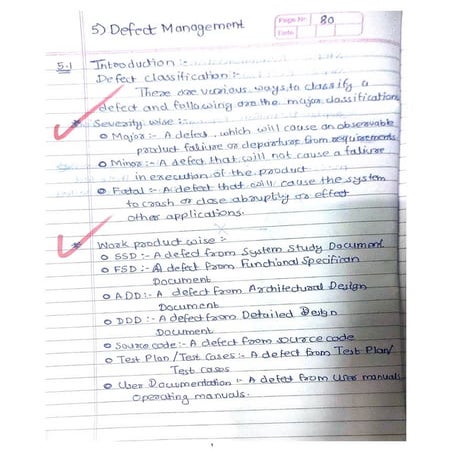 5) Defect Management
Page No. 80
Date
5.1 Introduction :-
Defect classification :-
There are various ways to classify a
defect and following are the major classification
* Severity wise :-
o Major :- A defect, which will cause an observable
product faliure or departure from requirements
o Minor :- A defect that will not cause a faliure
in execution of the product
o Fatal :- A defect that will cause the system
to crash or close abruptly or effect
other applications.
* Work product wise :-
o SSD :- A defect from System Study Document
o FSD :- A defect from Functional Specifican
Document
o ADD :- A defect from Architectural Design
Document
o DDD :- A defect from Detailed Design
Document
o Source code :- A defect from source code
o Test Plan / Test Cases :- A defect from Test Plan/
Test cases
o User Documentation :- A defect from User manuals
Operating manuals.